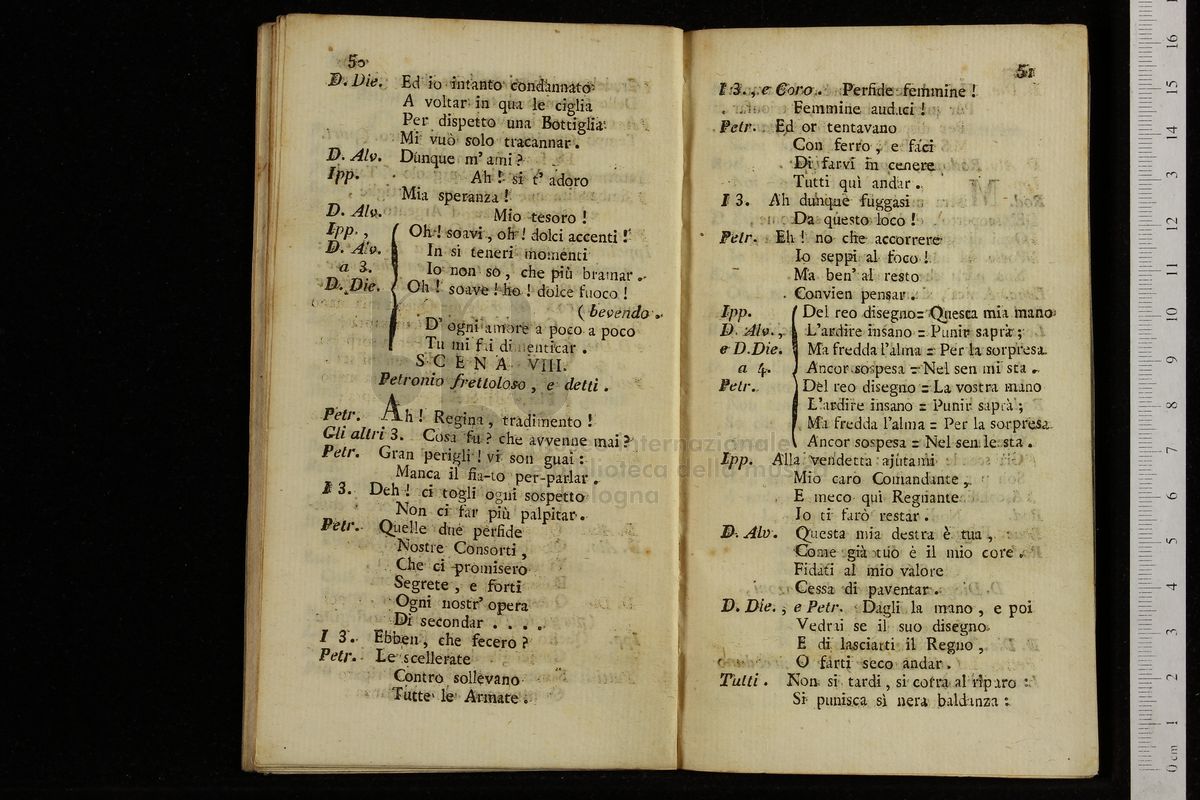 50
D. Die. Ed io intanto condannato
A voltar in qua le ciglia
Per dispetto una Bottiglia
Mi vuò solo tracannar.
D. Alv. Dunque m' ami?
Ipp. Ah! si t' adoro
Mia speranza!
D. Alv. Mio tesoro!
Ipp., Oh! soavi, oh! dolci accenti!
D. Alv. In si teneri momenti
a 3. Io non sò, che più bramar.
D. Die. Oh! soave! ho! dolce fuoco!
(bevendo.
D' ogni amore a poco a poco
Tu mi fai dimenticar.
SCENA VIII.
Petronio frettoloso, e detti.
Petr. Ah! Regina, tradimento!
Gli altri 3. Cosa fu? che avvenne mai?
Petr. Gran perigli! vi son guai:
Manca il fia-to per-parlar.
I 3. Deh! ci togli ogni sospetto
Non ci far più palpitar.
Petr. Quelle due perfide
Nostre Consorti,
Che ci promisero
Segrete, e forti
Ogni nostr' opera
Di secondar . . . .
I 3. Ebben, che fecero?
Petr. Le scellerate
Contro sollevano
Tutte le Armate.
51
I 3., e Coro. Perfide femmine!
Femmine audaci!
Petr. Ed or tentavano
Con ferro, e faci
Di farvi in cenere
Tutti quì andar.
I 3. Ah dunque fuggasi
Da questo loco!
Petr. Eh! no che accorrere
Io seppi al foco!
Ma ben' al resto
Convien pensar.
Ipp. Del reo disegno = Questa mia mano
D. Alv., L'ardire insano = Punir saprà;
e D.Die. Ma fredda l'alma = Per la sorpresa
a 4. Ancor sospesa = Nel sen mi sta.
Petr. Del reo disegno = La vostra mano
L'ardire insano = Punir saprà;
Ma fredda l'alma = Per la sorpresa
Ancor sospesa = Nel sen le sta.
Ipp. Alla vendetta ajutami
Mio caro Comandante,
E meco quì Regnante
Io ti farò restar.
D. Alv. Questa mia destra è tua,
Come già tuo è il mio core.
Fidati al mio valore
Cessa di paventar.
D. Die., e Petr. Dagli la mano, e poi
Vedrai se il suo disegno
E di lasciarti il Regno,
O farti seco andar.
Tutti. Non si tardi, si corra al riparo:
Si punisca sì nera baldanza:
internazionale
e biblioteca della musica
bologna
0 cm 1 2 3 4 5 6 7 8 9 10 11 12 13 14 15 16